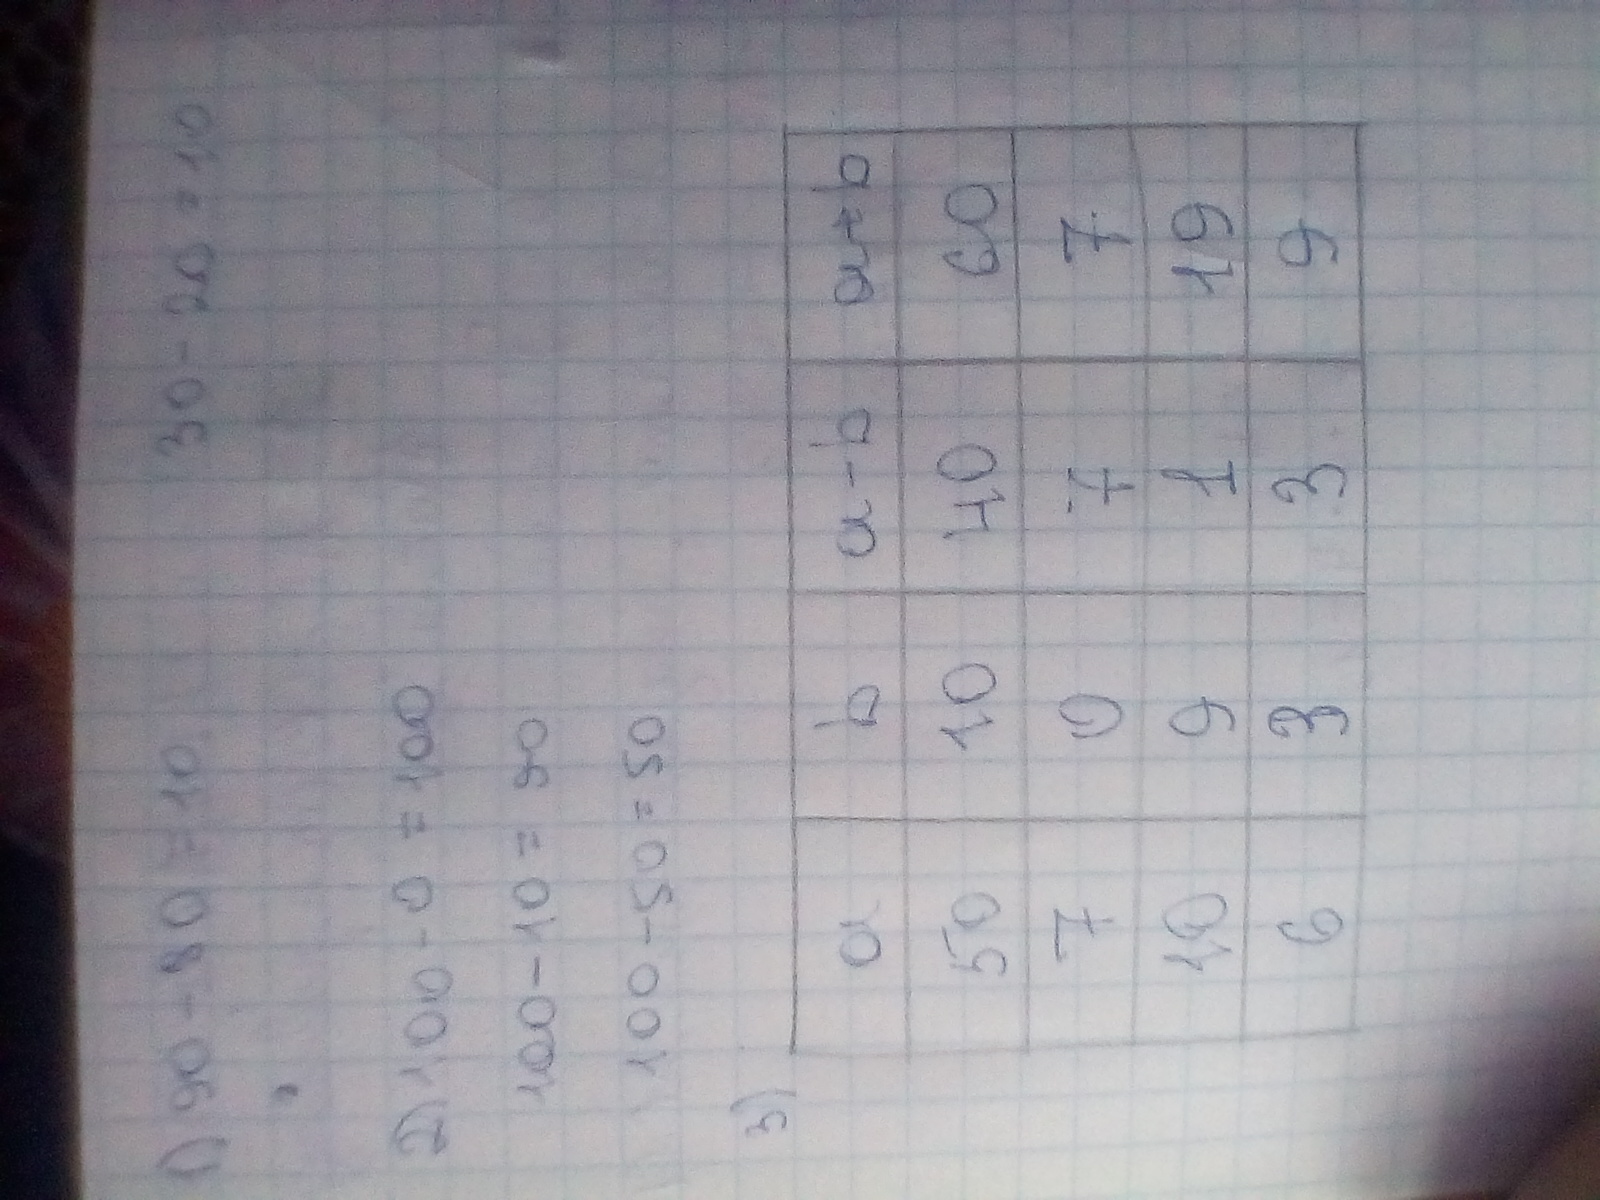 1) 90-80=10. 30-20=10
2) 100-0=100
100-10=90
100-50=50
3)
a b a-b a+b
50 10 40 60
7 0 7 7
10 9 1 19
6 3 3 9